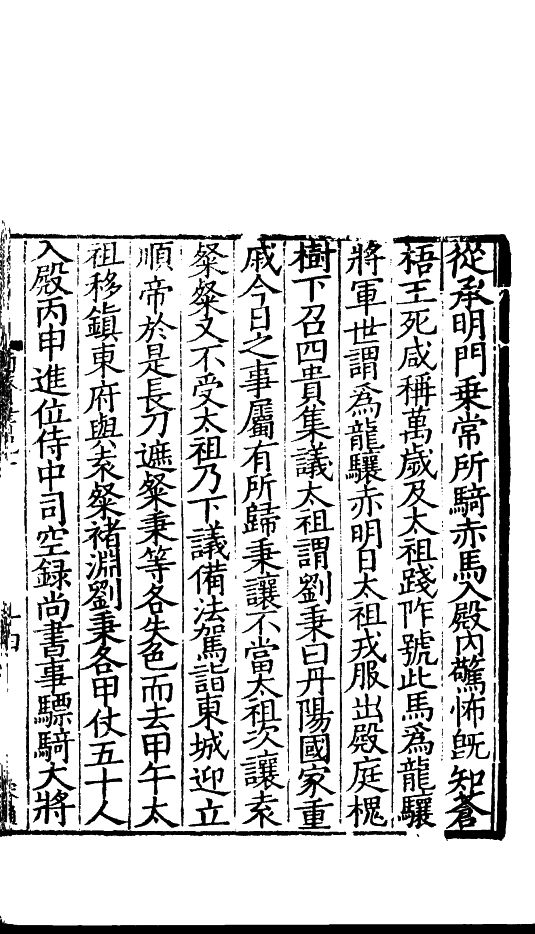 從承明門乗常所騎赤馬入殿内驚怖旣知蒼
梧王死咸稱萬歲及太祖踐阼號此馬爲龍驤
將軍世謂爲龍驤赤明日太祖戎服出殿庭槐
樹下召四貴集議太祖謂劉秉曰丹陽國家重
戚今日之事屬有所歸秉讓不當太祖次讓袁
粲粲又不受太祖乃下議備法駕詣東城迎立
順帝於是長刀遮粲秉等各失色而去甲午太
祖移鎮東府與袁粲褚淵劉秉各甲仗五十人
入殿丙申進位侍中司空録尚書事驃騎大將